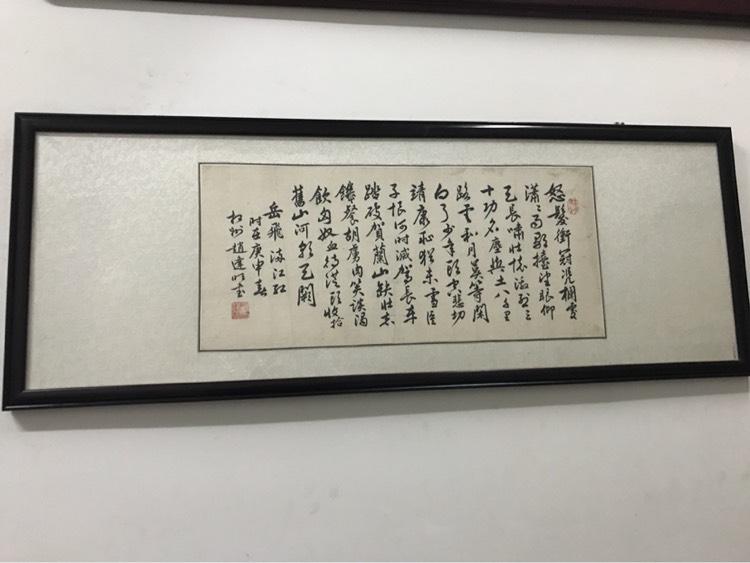 怒髮衝冠凭欄處
瀟々雨歇擡望眼仰
天長嘯壯懷激烈三
十功名塵與土八千里
路雲和月莫等閑
白了少年頭空悲切
靖康恥猶未雪臣
子恨何時滅駕長車
踏破賀蘭山缺壯志
饑餐胡虜肉笑談渴
飲匈奴血待從頭收拾
舊山河朝天闕
岳飛滿江紅
時在庚申春
趙達明書